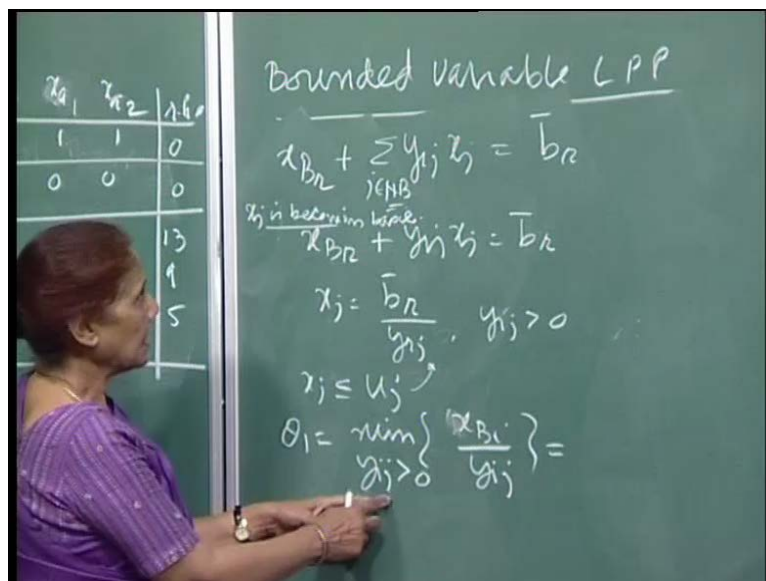 x_{a_1} x_{a_2} r.h.s
1 1 0
0 0 0
13
9
5
Bounded Variable LPP
x_{B_r} + Σ_{j∈NB} y_{rj} x_j = b̄_r
x_j is becoming basic
x_{B_r} + y_{rj} x_j = b̄_r
x_j = b̄_r / y_{rj} , y_{ij} > 0
x_j ≤ u_j
θ_1 = min_{y_{ij} > 0} { x_{B_i} / y_{ij} } =